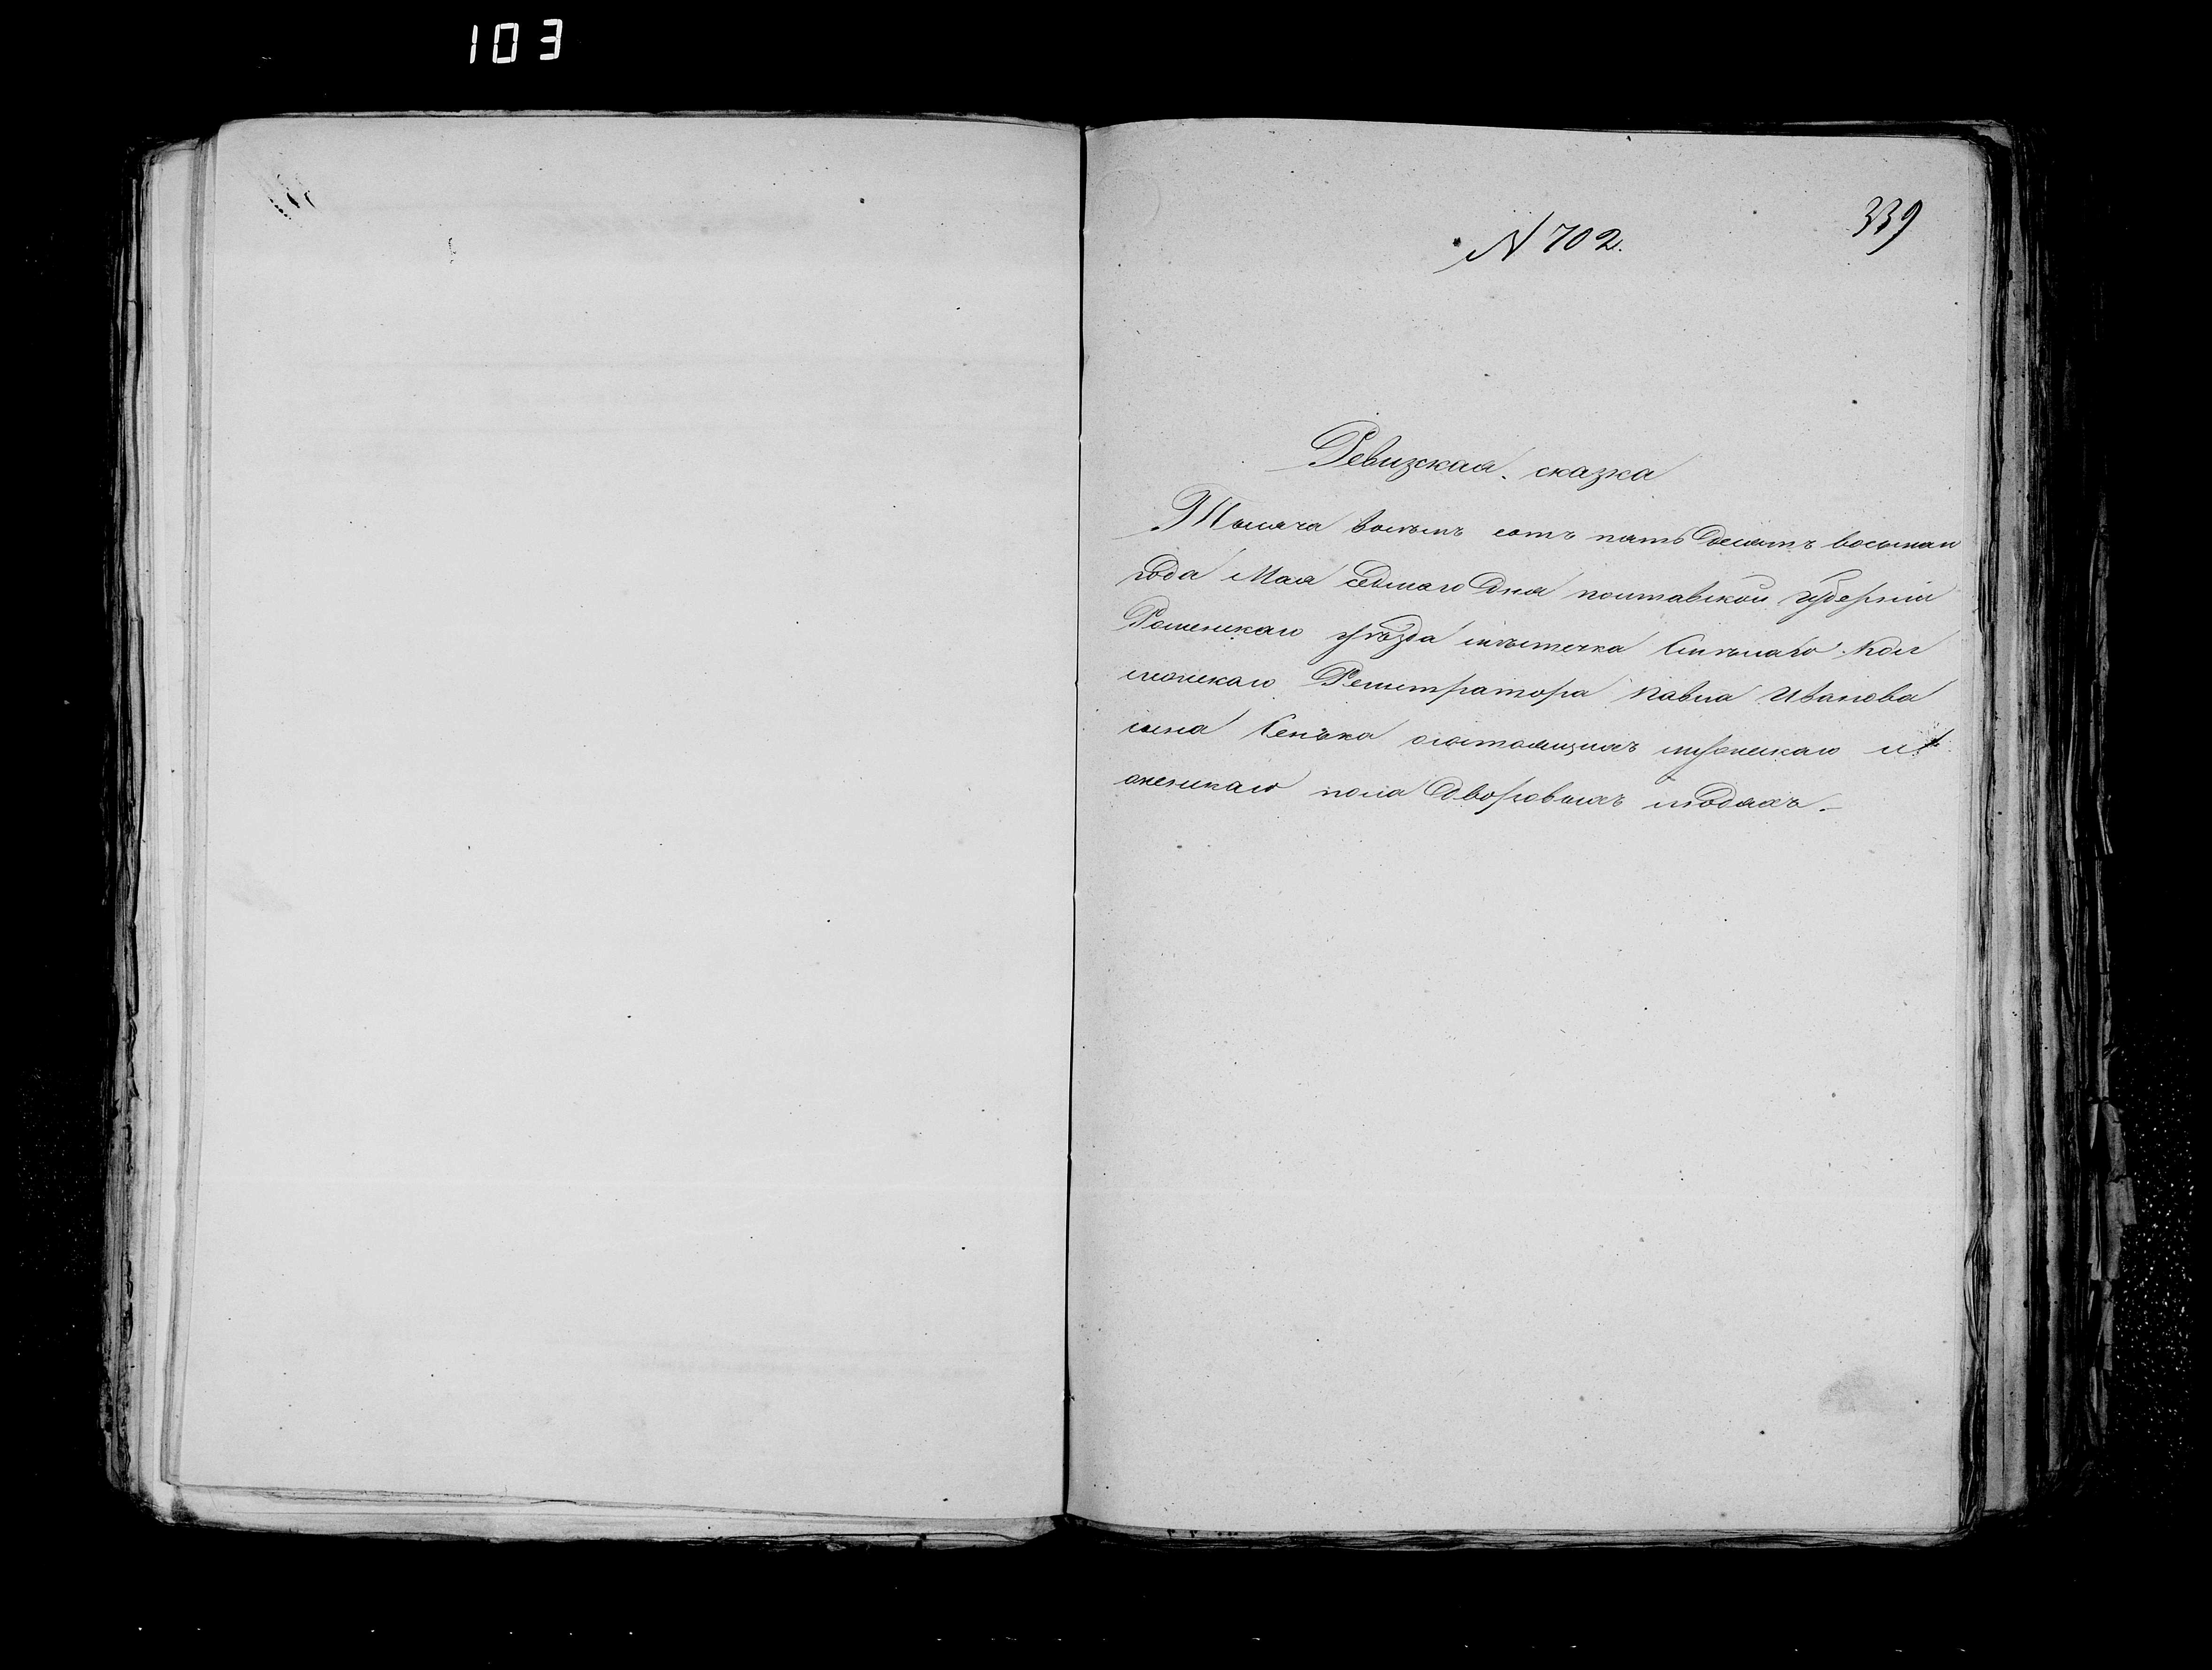 103
339
N 702.
Ревизская сказка
Тысяча восемь сотъ пять десятъ восьмаго
года Мая седмаго дня полтавской губерніи
Роменскаго уѣзда мѣстечка Смѣлаго Кол
скаго Регистратора павла Иванова
сына Сенька о состоящихъ мужескаго и
женскаго пола дворовыхъ людяхъ.–